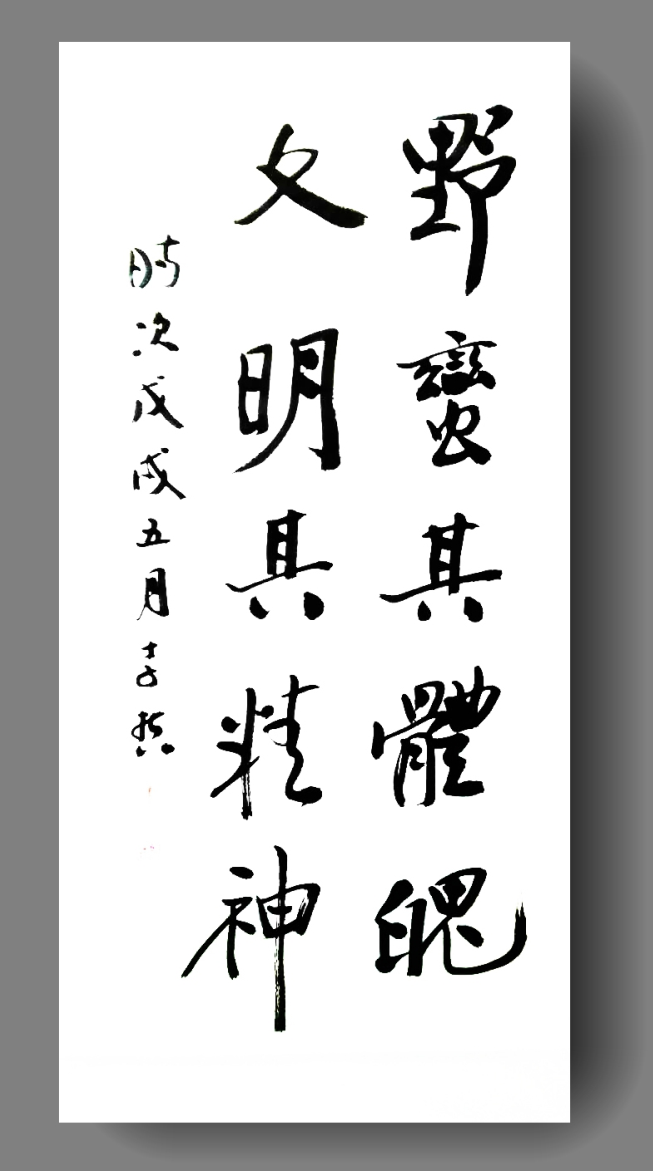 野蠻其體魄
文明其精神
時次戊戌五月